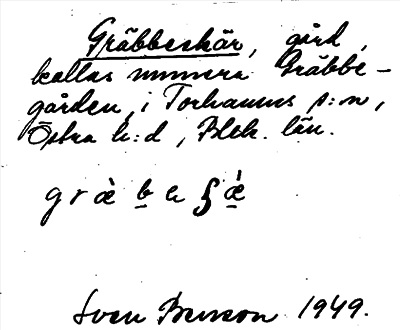 Gräbbeskär, gård,
kallas numera Gräbbe-
gården, i Torhamns s:n,
Östra h:d, Blek. län.
Sven Benson 1949.